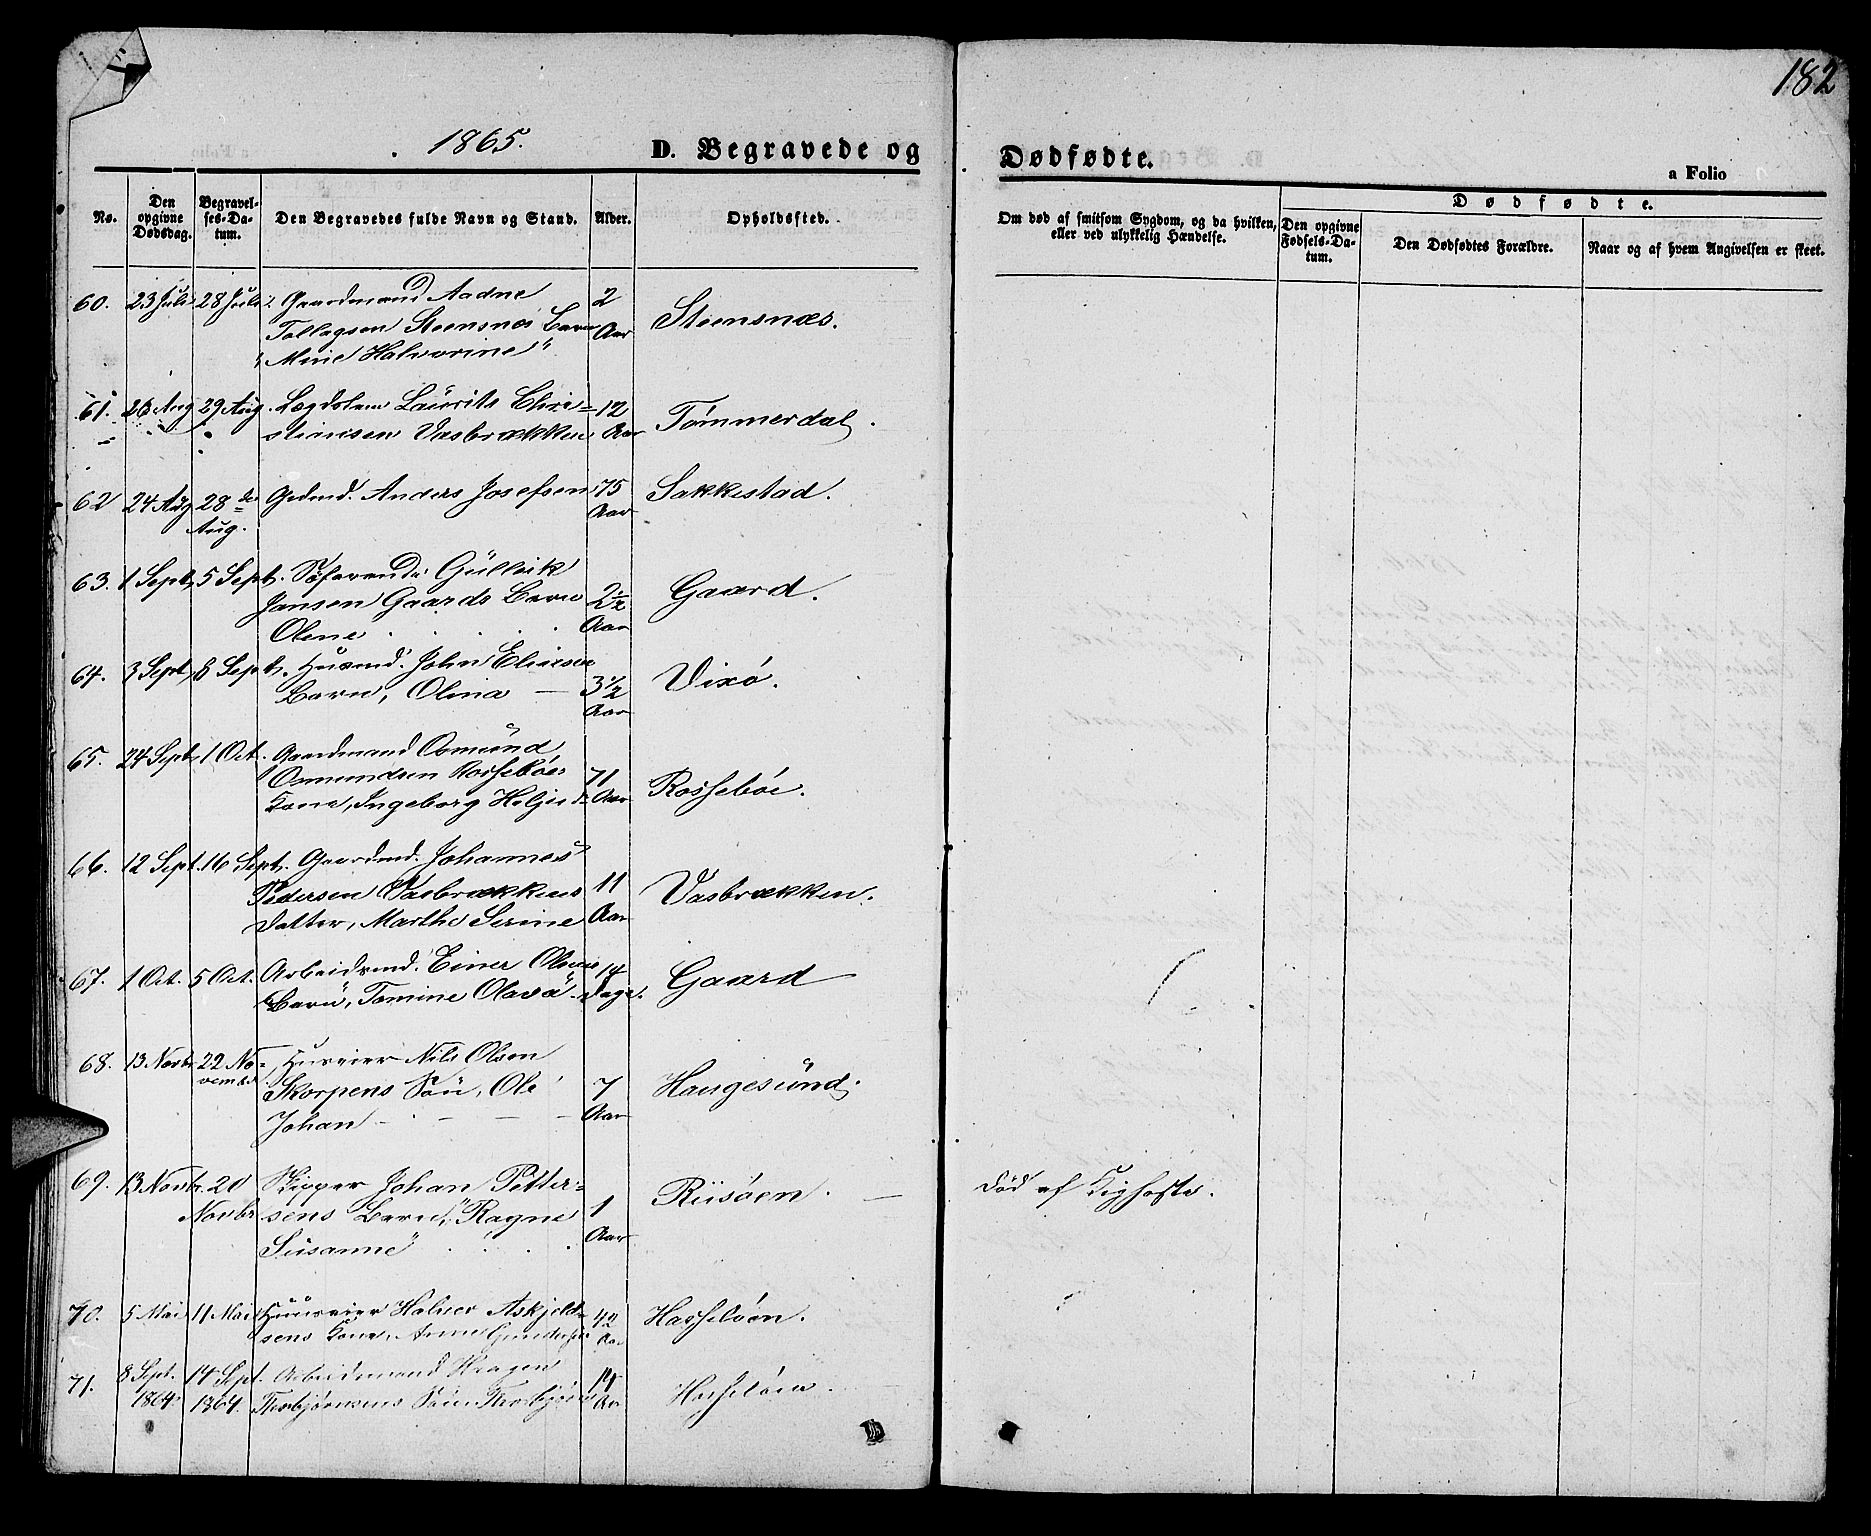 182
1865.
D. Begravede og
Dødfødte.
a Folio
No.
Den opgivne Dødsdag.
Begravelses-Datum.
Den Begravedes fulde Navn og Stand.
Alder.
Opholdssted.
Om død af smitsom Sygdom, og da hvilken, eller ved ulykkelig Hændelse.
Dødfødte.
Den opgivne Fødsels-Datum.
Den Dødfødtes Forældre.
Naar og af hvem Angivelsen er skeet.
60. 23 Juli 28 Juli Gaardmand Aadne 2
Tollagsen Steensnes Barn Aar Steensnæs.
"Mine Halvorine"
61. 26 Aug 29 Aug. Lægdslem Laurits Chri= 12
stiansen Vasbrækken Aar Tømmerdal.
62 24 Aug 28 de Grdmd. Anders Josefsen 75 Sakkestad.
Aug. Aar
63. 1 Sept. 5 Sept. Søfarende Gullick
Jansen Gaards Barn 2½ Gaard.
Olene Aar
64. 3 Sept. 8 Sept. Husmd. John
Barn, Olina — 3½ Vixø.
Aar
65. 24 Sept. 1 Oct. Gaardmand Osmund
Osmundsen Rossebøes 71
Kone, Ingeborg Aar Rossebøe.
66. 12 Sept. 16 Sept. Gaardmd. Johannes
Pedersen Vasbrækkens 11 Vasbrækken.
Datter, Marthe Serine Aar
67. 1 Oct. 5 Oct. Arbeidsmd. Einer Olsens 14 Gaard
Barn, Tomine Olava Dage.
68. 13 Novbr. 22 No= Huseier Nils Olsen
vembr. Skorpens Søn, Ole 7 Haugesund.
Johan — — — Aar
69. 13 Novbr. 20 Skipper Johan Petter= Riisøen. — Død af Kighoste.
Novbr. sens Barn, "Ragne 1
Susanne" Aar
70. 5 Mai 11 Mai Huuseier Halvor Askjeld= 42 Hasseløen.
sens Kone, Anne Aar
71. 8 Sept. 14 Sept. Arbeidsmand Haagen
1864. 1864. Thorbjørnsens Søn Thorbjørn Aar Hasseløen.